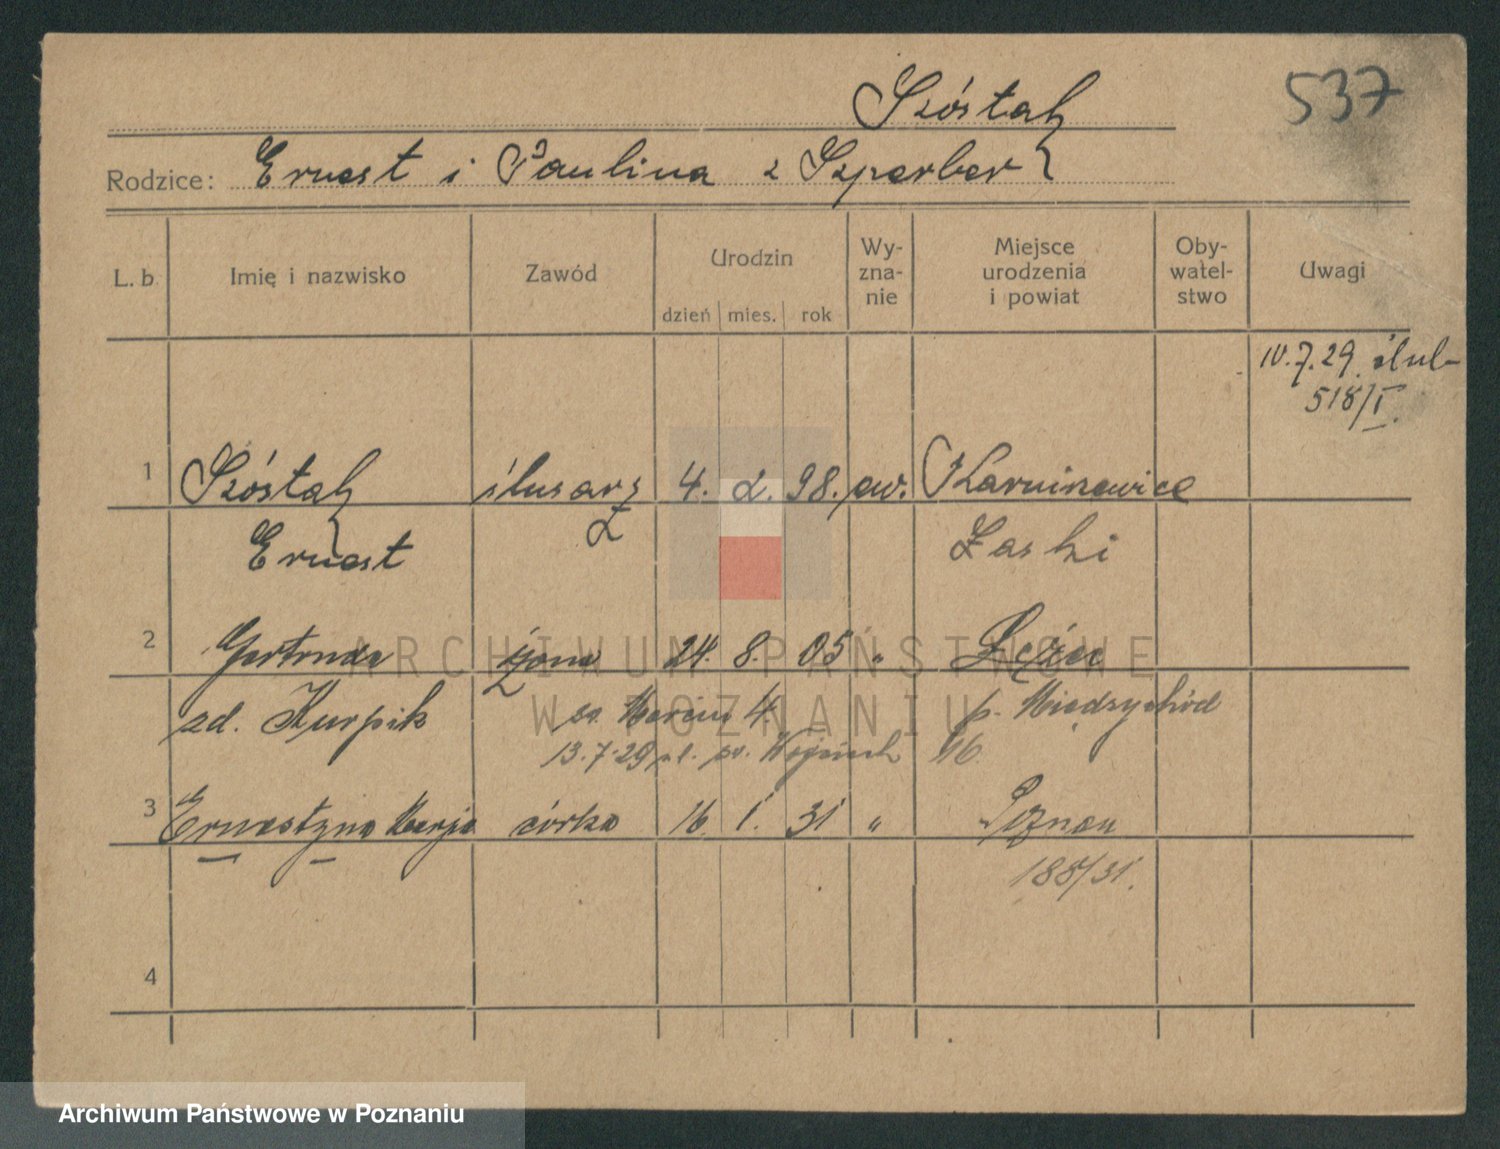 Szóstak
537
Rodzice: Ernest i Paulina z Szperber
L. b. Imię i nazwisko Zawód Urodzin Wy-zna-nie Miejsce urodzenia i powiat Oby-watel-stwo Uwagi
dzień mies. rok
10.7.29 ślub
518/I.
1 Szóstak ślusarz 4. 2. 98. ew.
Ernest Łaski
2 Gertruda żona 24. 8. 05 "
zd. Kurpik św. Marcin 4. p. Międzychód
13.7.29 ul. św. Wojciech 46
3 Ernestyna Marja córka 16. 1. 31 " Poznań
188/31.
4
ARCHIWUM PAŃSTWOWE
W POZNANIU
Archiwum Państwowe w Poznaniu